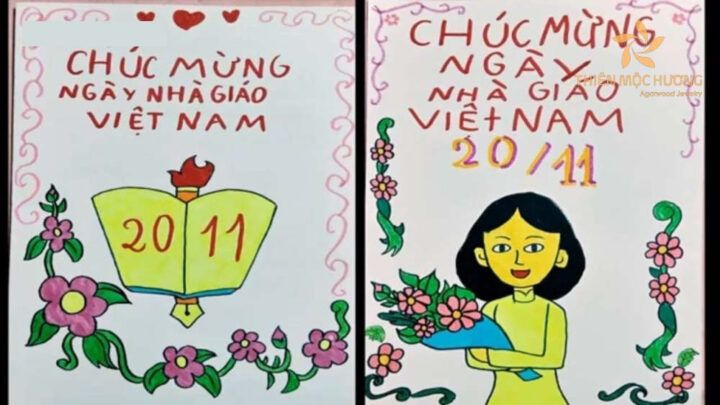 CHÚC MỪNG
NGÀY NHÀ GIÁO
VIỆT NAM
20 11
CHÚC MỪNG
NGÀY
NHÀ GIÁO
VIỆT NAM
20/11
THIÊN MỘC HƯƠNG
Agarwood Jewelry